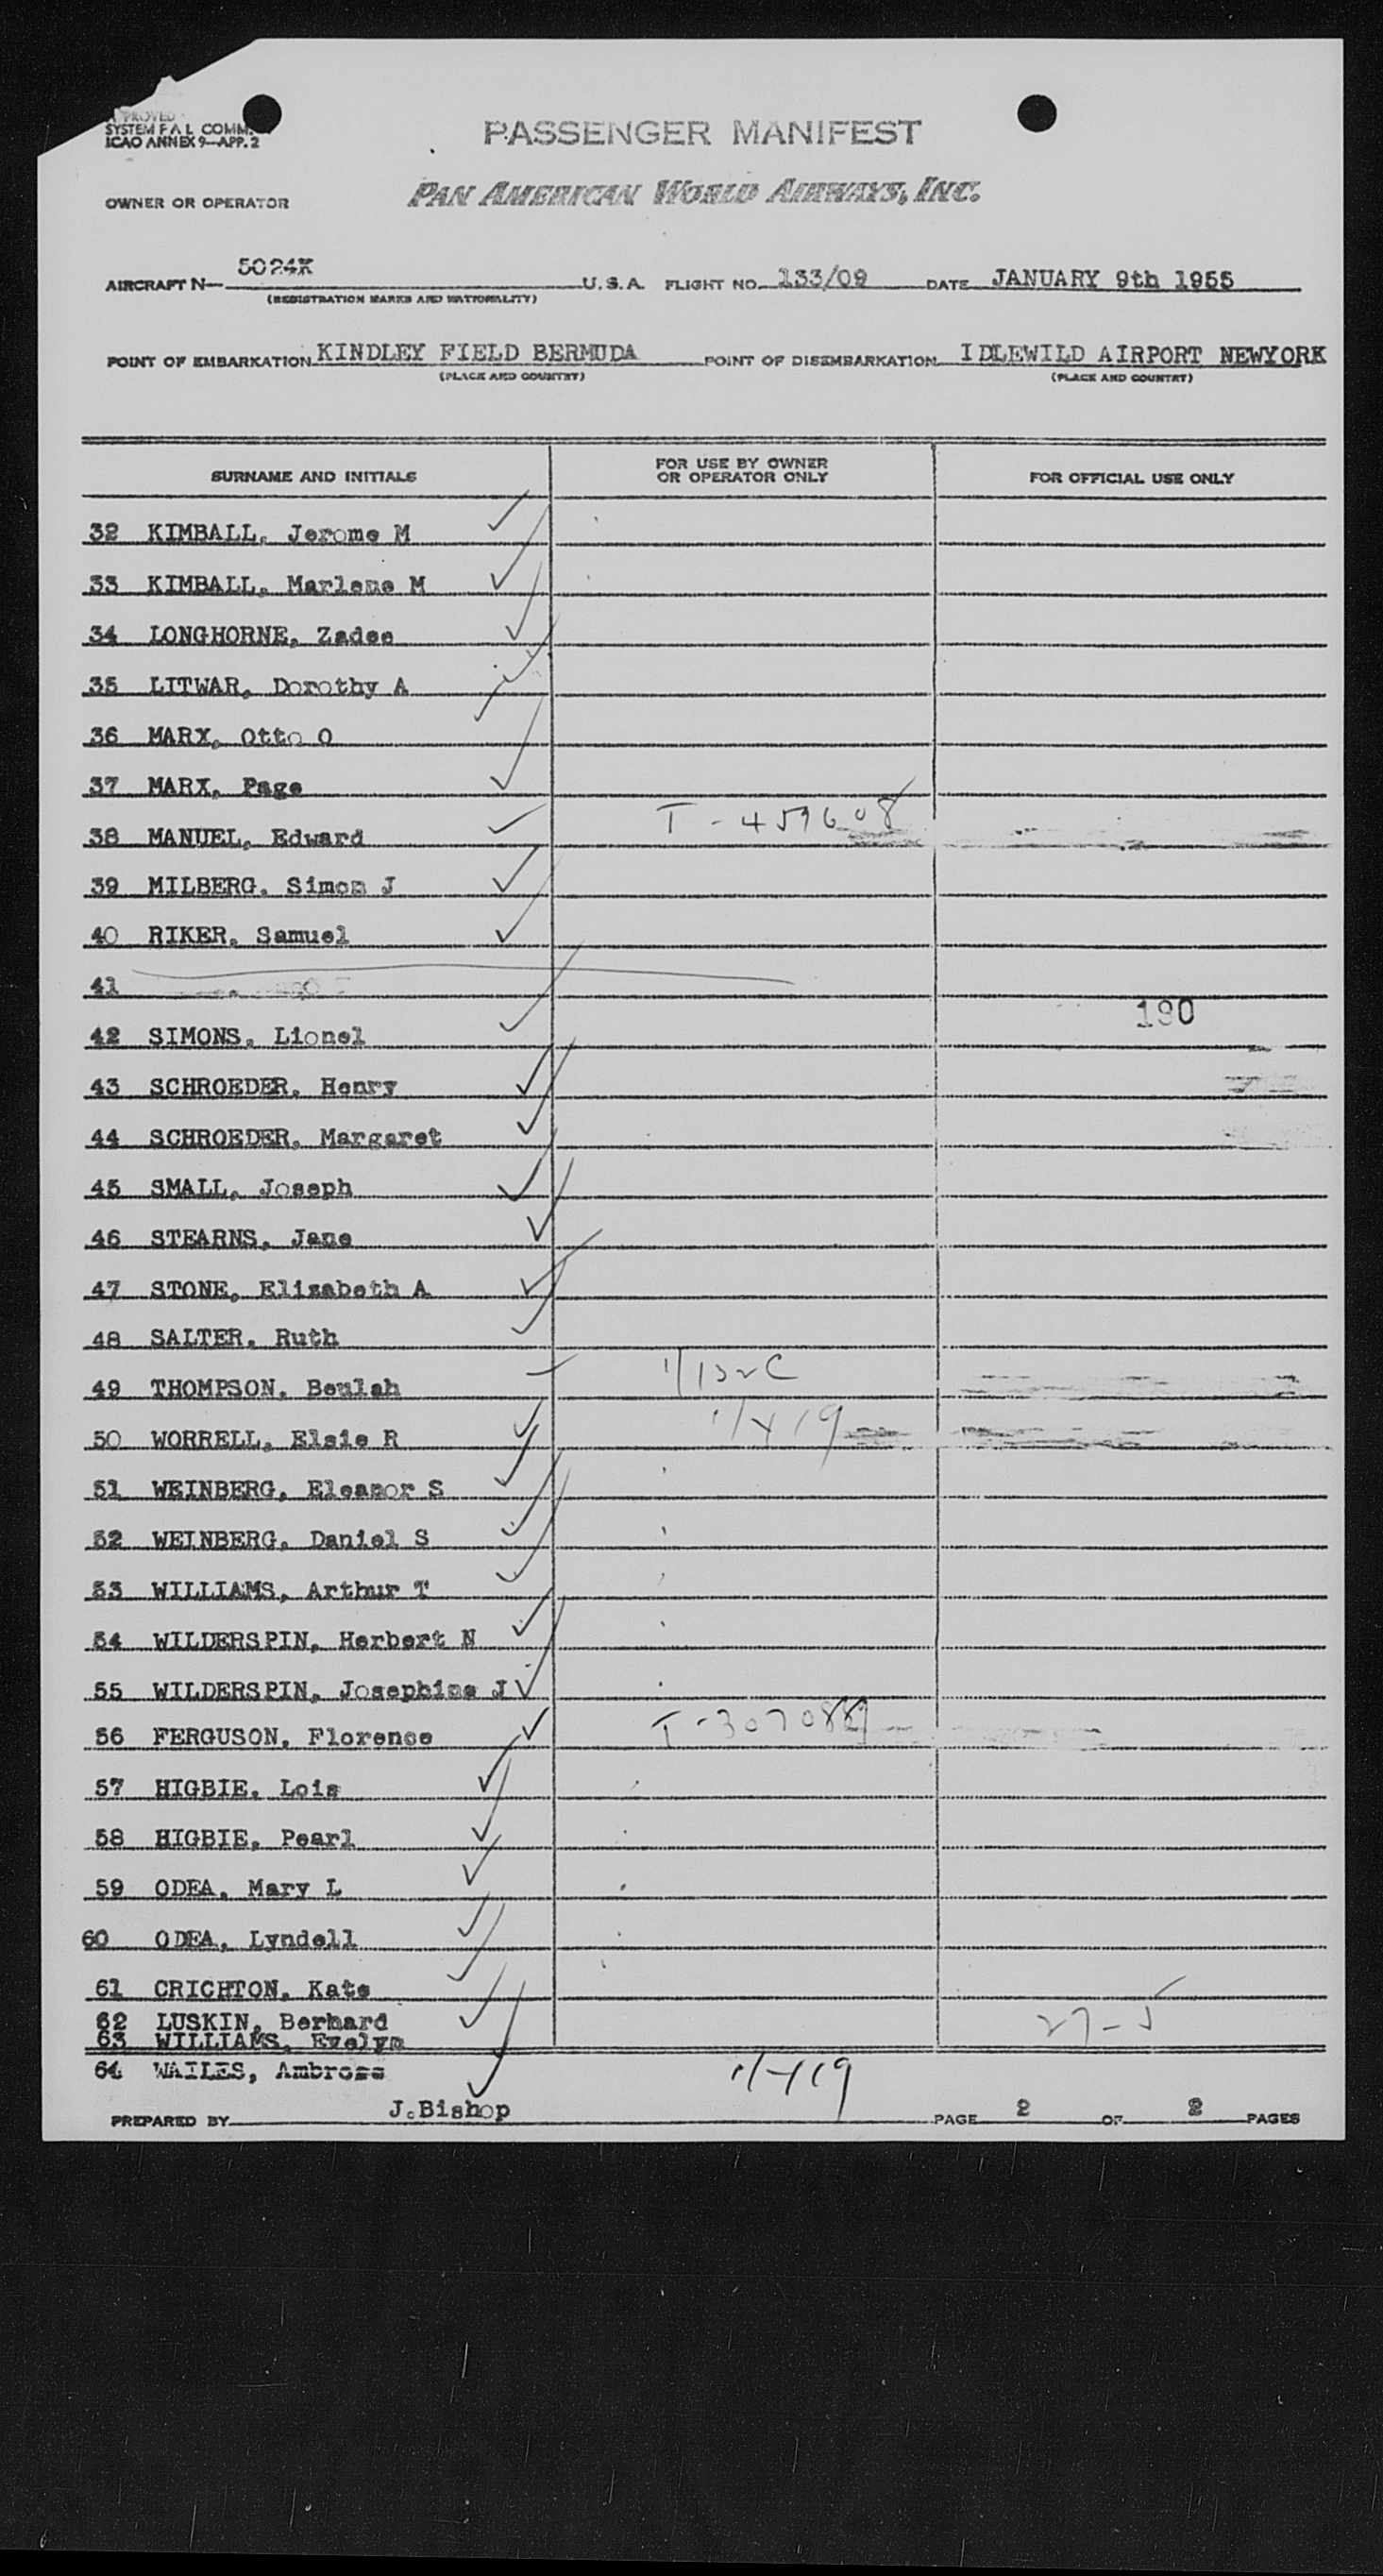 PROVED
SYSTEM F A L COMM.
ICAO ANNEX 9—APP. 2
PASSENGER MANIFEST
OWNER OR OPERATOR
PAN AMERICAN WORLD AIRWAYS, INC.
AIRCRAFT N— 5024K U.S.A. FLIGHT NO. 133/09 DATE JANUARY 9th 1955
(REGISTRATION MARKS AND NATIONALITY)
POINT OF EMBARKATION KINDLEY FIELD BERMUDA POINT OF DISEMBARKATION IDLEWILD AIRPORT NEWYORK
(PLACE AND COUNTRY) (PLACE AND COUNTRY)
SURNAME AND INITIALS FOR USE BY OWNER OR OPERATOR ONLY FOR OFFICIAL USE ONLY
32 KIMBALL, Jerome M
33 KIMBALL, Marlene M
34 LONGHORNE, Zadee
35 LITWAR, Dorothy A
36 MARX, Otto O
37 MARX, Page
38 MANUEL, Edward T-459608
39 MILBERG, Simon J
40 RIKER, Samuel
41
190
42 SIMONS, Lionel
43 SCHROEDER, Henry
44 SCHROEDER, Margaret
45 SMALL, Joseph
46 STEARNS, Jane
47 STONE, Elizabeth A
48 SALTER, Ruth
49 THOMPSON, Beulah
50 WORRELL, Elsie R
51 WEINBERG, Eleanor S
52 WEINBERG, Daniel S
53 WILLIAMS, Arthur T
54 WILDERSPIN, Herbert N
55 WILDERSPIN, Josephine J
56 FERGUSON, Florence
57 HIGBIE, Lois
58 HIGBIE, Pearl
59 ODEA, Mary L
60 ODEA, Lyndell
61 CRICHTON, Kate
62 LUSKIN, Berhard 27-5
63 WILLIAMS, Evelyn
64 WAILES, Ambrose
PREPARED BY J.Bishop PAGE 2 OF 2 PAGES